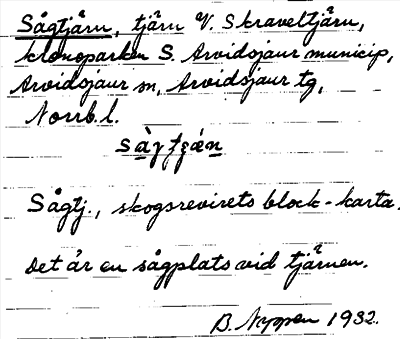 Sågtjärn, tjärn V. Skraveltjärn,
kronoparken S. Arvidsjaur municip,
Arvidsjaur sn, Arvidsjaur tg,
Norrb.l.
Sågtj., skogsrevirets block-karta.
Det är en sågplats vid tjärnen.
B. Nyppen 1932.